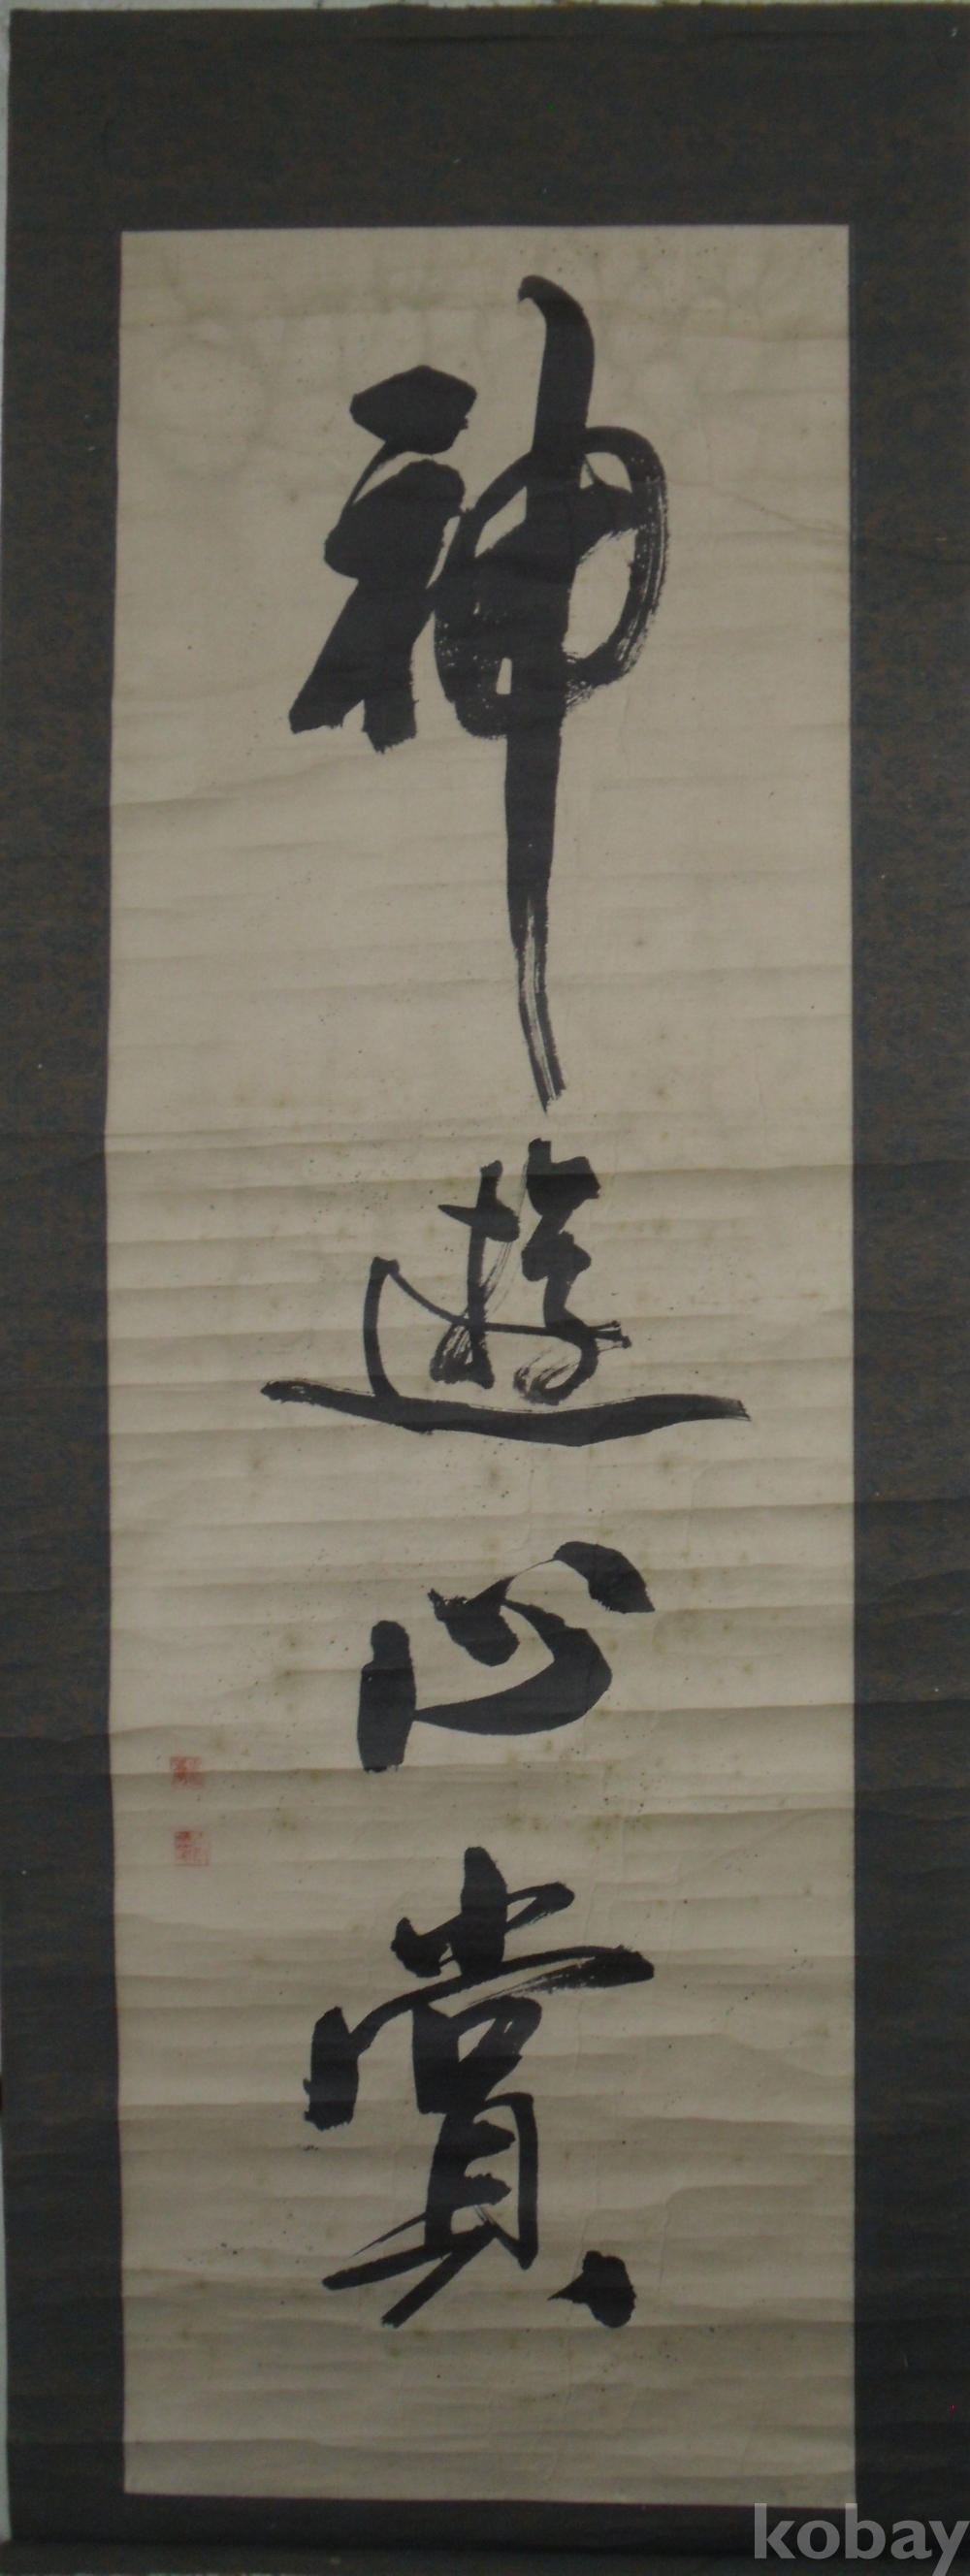 神遊心賞
kobay